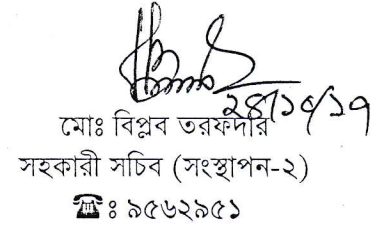 ২৪/১০/১৭
মোঃ বিপ্লব তরফদার
সহকারী সচিব (সংস্থাপন-২)
☎ঃ ৯৫৬২৯৫১